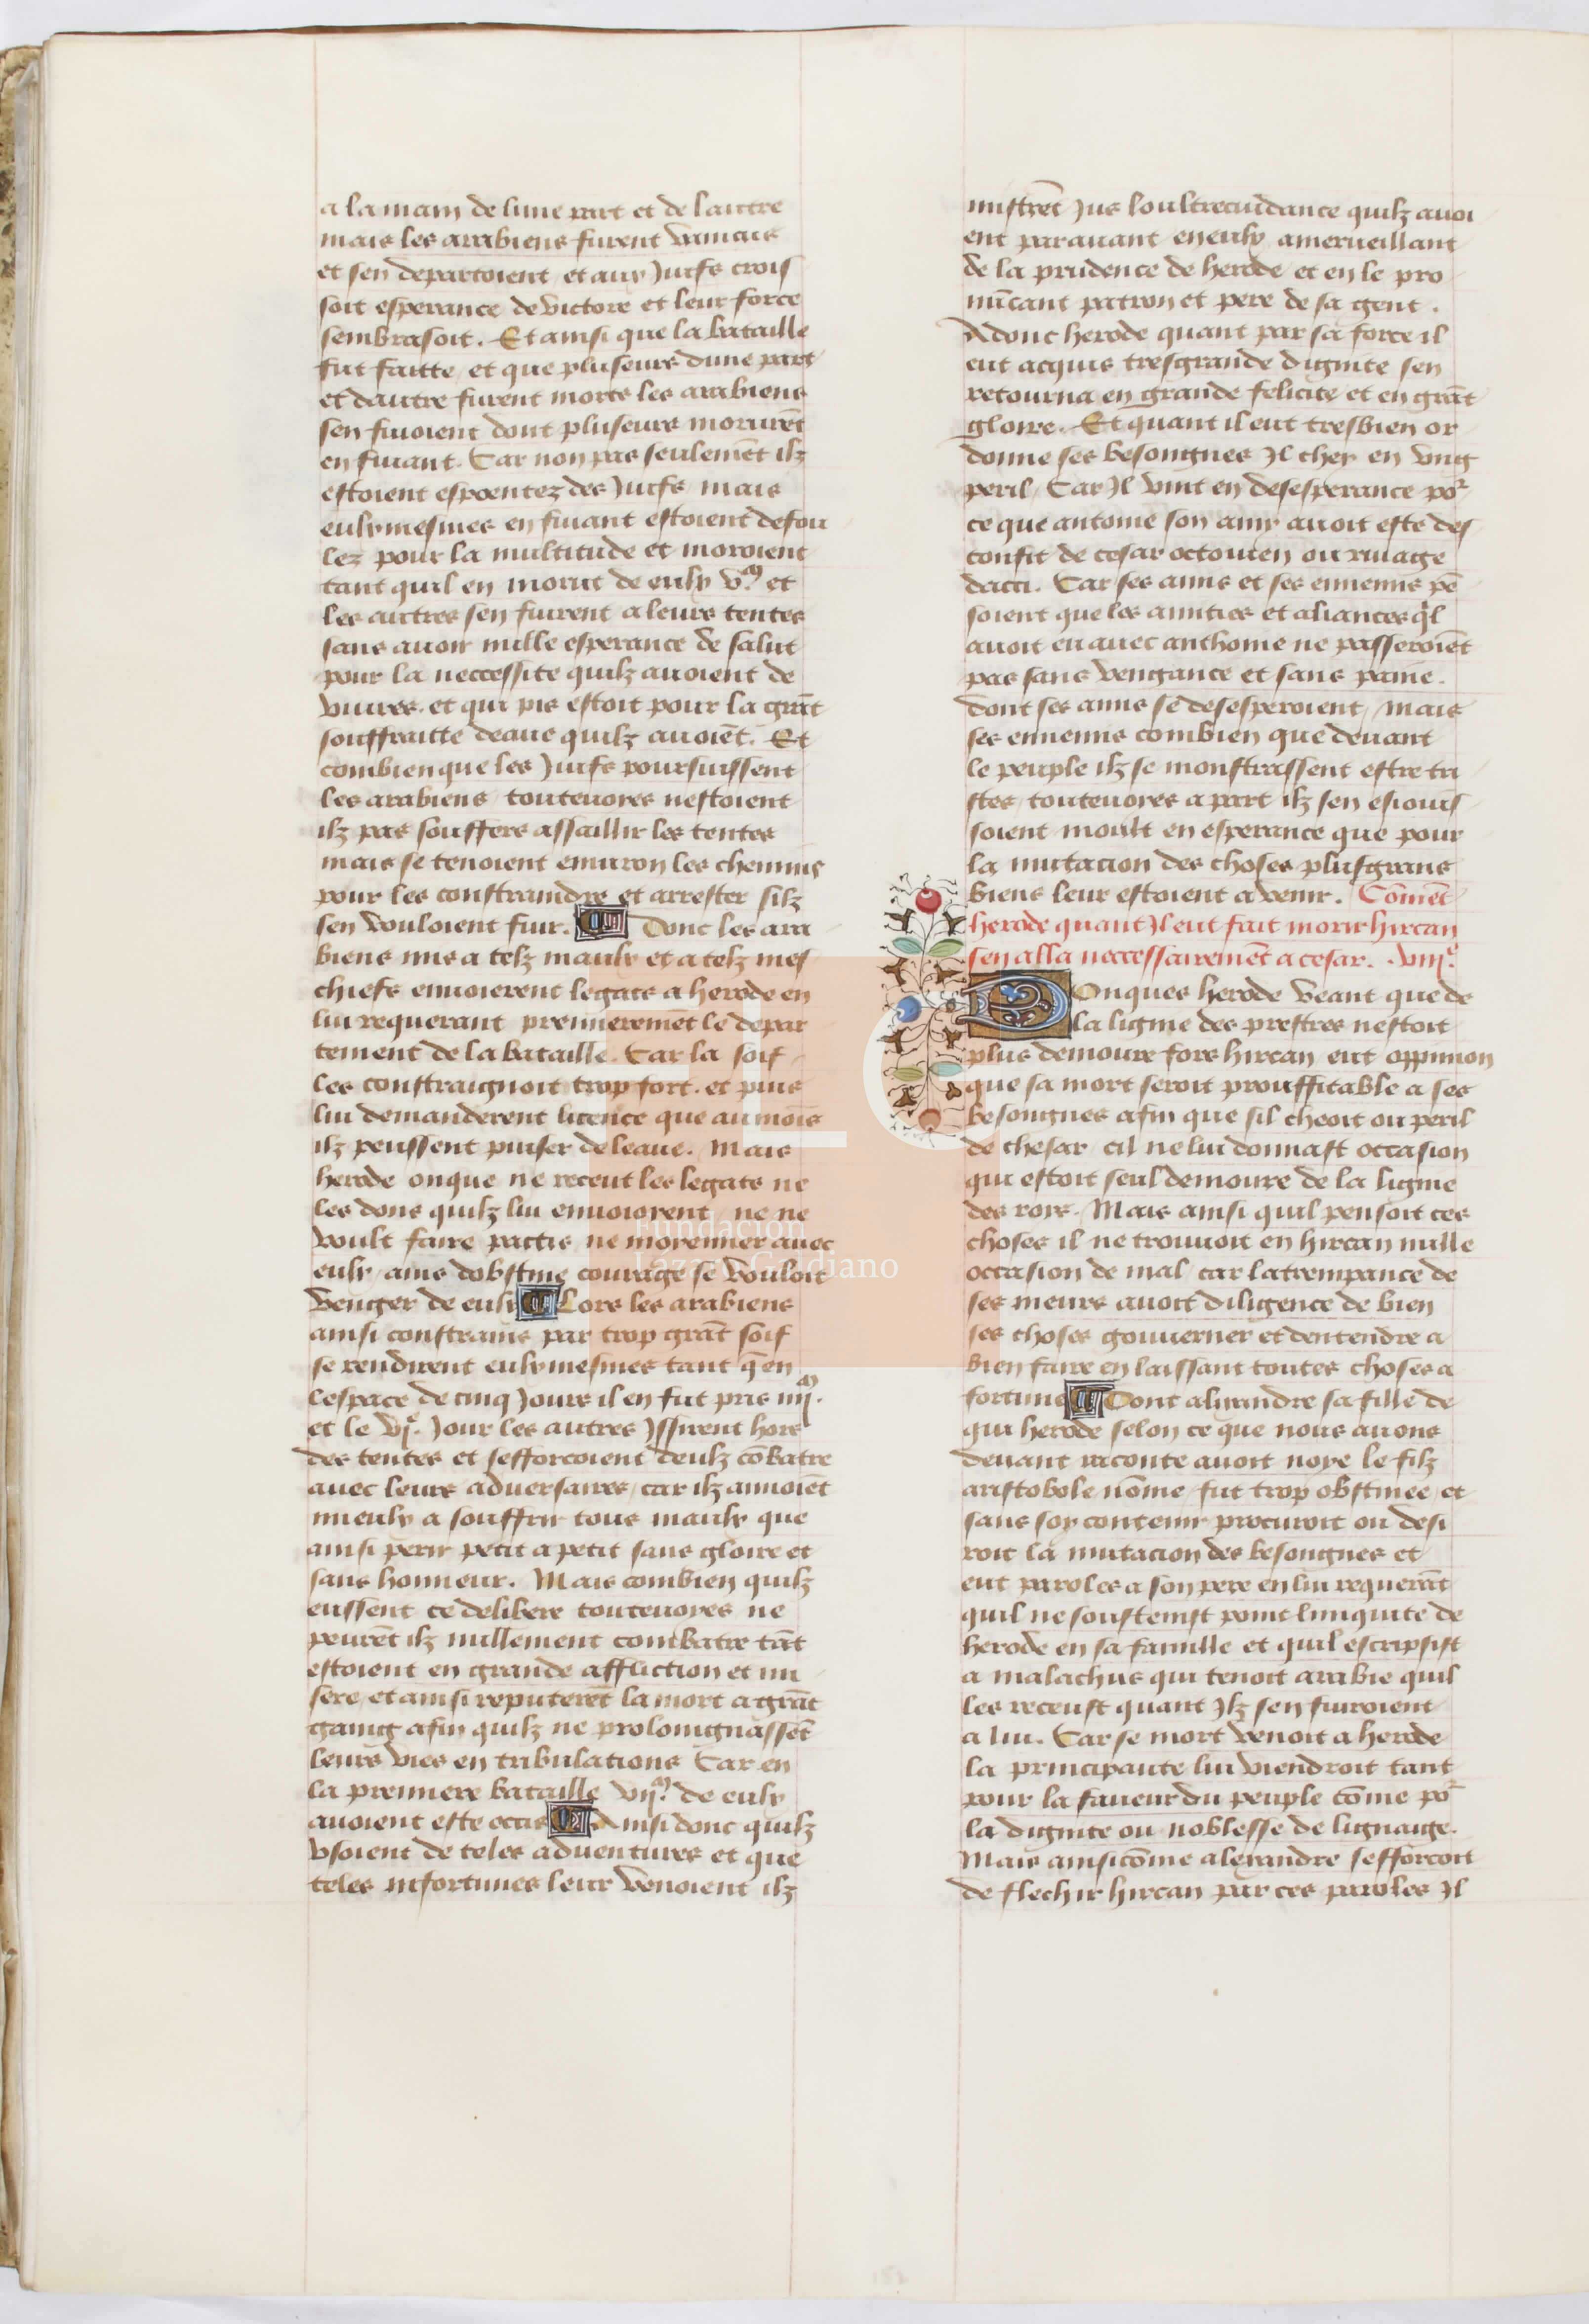 a la main de lune part et de lautre
mais les arabiens furent vaincus
et sen departoient et aux Juifs crois
soit esperance de victore et leur force
sembrasoit. Et ainsi que la bataille
fut faitte et que pluseurs dune part
et dautre furent mors les arabiens
sen fuioient dont pluseurs morurēt
en fuiant. Car non pas seulemēt ilz
estoient espoentez des Juifs mais
eulx mesmes en fuiant estoient defou
lez pour la multitude et moroient
tant quil en morut de eulx v.ᵐ et
les autres sen fuirent a leurs tentes
sans auoir nulle esperance de salut
pour la neccessite quilz auoient de
viures. et qui pis estoit pour la grāt
souffraitte deaue quilz auoiēt. Et
combien que les Juifs poursuissent
les arabiens toutevoies nestoient
ilz pas souffers assaillir les tentes
mais se tenoient enuiron les chemins
pour les constraindre et arrester silz
sen vouloient fuir. Donc les ara
biens mis a telz maulx et a telz mes
chiefs enuoierent legats a herode en
lui requerant premieremēt le depar
tement de la bataille. Car la soif
les constraignoit trop fort. et puis
lui demanderent licence que au mois
ilz peussent puiser de leaue. Mais
herode onque ne receut les legats ne
les dons quilz lui enuoierent ne ne
voult faire pactis ne moienner auec
eulx ains dobstine courage se vouloit
venger de eulx Lors les arabiens
ainsi constrains par trop grāt soif
se rendirent eulx mesmes tant q̄ en
lespace de cinq Jours il en fut pris iiij.ᵐ
et le vj.ᵉ Jour les autres Jssirent hors
des tentes et sefforcoient deulz cōbatre
auec leurs aduersaires car ilz amoiēt
mieulx a souffrir tous maulx que
ainsi perir petit a petit sans gloire et
sans honneur. Mais combien quilz
eussent ce delibere toutevoies ne
peurēt ilz nullement combatre tāt
estoient en grande affliction et mi
sere et ainsi reputerēt la mort a grāt
gaing afin quilz ne prolongnassēt
leurs vies en tribulations Car en
la premiere bataille vij.ᵐ de eulx
auoient este occis Ainsi donc quilz
vsoient de teles aduentures et que
teles infortunes leur venoient ilz
mistrēt Jus loultrecuidance quilz auoi
ent parauant en eulx amerueillant
de la prudence de herode et en le pro
nūcant patron et pere de sa gent.
Adonc herode quant par sa force il
eut acquis tresgrande dignite sen
retourna en grande felicite et en grāt
gloire. Et quant il eut tresbien or
donne ses besongnes Jl cheÿ en vng
peril Car Jl vint en desesperance poʳ
ce que antoine son amy auoit este des
confit de cesar octouien ou riuage
dacti. Car ses amis et ses ennemis pē
soient que les amities et aliances q̄l
auoit eu auec anthoine ne passeroiēt
pas sans vengance et sans paine.
dont ses amis se desesperoient mais
ses ennemis combien que deuant
le peuple ilz se monstrassent estre tri
stes toutevoies a part ilz sen esiouis
soient moult en esperance que pour
la mutacion des choses plusgrans
biens leur estoient a venir. Cōmēt
herode quant Jl eut fait morir hircan
sen alla neccessairemēt a cesar. .viij.ᵉ
Donques herode veant que de
la lignie des prestres nestoit
plus demoure fors hircan eut oppinion
que sa mort seroit prouffitable a ses
besongnes afin que sil cheoit ou peril
de chesar cil ne lui donnast occasion
qui estoit seul demoure de la lignie
des rois. Mais ainsi quil pensoit ces
choses il ne trouuoit en hircan nulle
occasion de mal car latrempance de
ses meurs auoit diligence de bien
ses choses gouuerner et dentendre a
bien faire en laissant toutes choses a
fortune Dont alixandre sa fille de
qui herode selon ce que nous auons
deuant raconte auoit noye le filz
aristobole nōme fut trop obstinee et
sans soy contenir procuroit ou desi
roit la mutacion des besongnes et
eut paroles a son pere en lui requerāt
quil ne soustenist point liniquite de
herode en sa famille et quil escripsist
a malachus qui tenoit arabie quil
les receust quant Jlz sen fuiroient
a lui. Car se mort venoit a herode
la principaute lui viendroit tant
pour la faueur du peuple cōme poʳ
la dignite ou noblesse de lignaige.
Mais ainsi cōme alexandre sefforcoit
de flechir hircan par ces paroles Jl
Fundación
Lázaro Galdiano